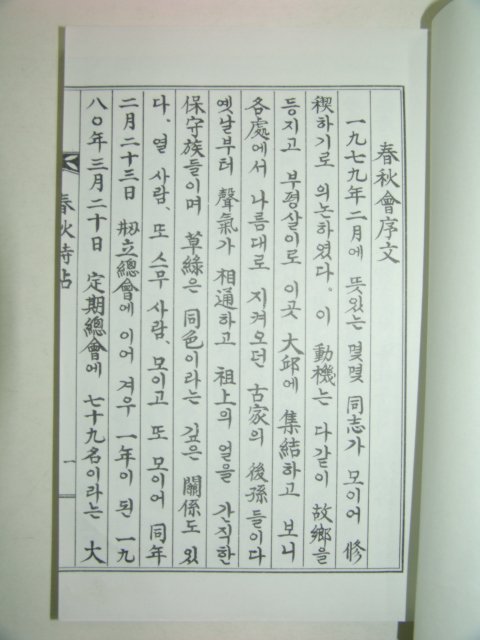 春秋會序文
一九七九年二月에 뜻있는 몇몇 同志가 모이어 修
稧하기로 의논하였다. 이 動機는 다같이 故鄕을
등지고 부평살이로 이곳 大邱에 集結하고 보니
各處에서 나름대로 지켜오던 古家의 後孫들이다
옛날부터 聲氣가 相通하고 祖上의 얼을 간직한
保守族들이며 草綠은 同色이라는 깊은 關係도 있
다. 열 사람、또 스무 사람、모이고 또 모이어 同年
二月二十三日 刱立總會에 이어 겨우 一年이 된 一九
八○年三月二十日 定期總會에 七十九名이라는 大
春秋時帖
一